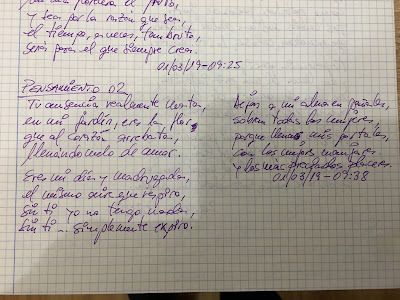 y sea por la razón que sea,
el tiempo, a veces, tan bruto,
será para el que siempre crea.
01/03/19-09:25
PENSAMIENTO 02
Tu ausencia realmente mata,
en mi jardín, eres la flor
que al corazón arrebata,
llenándomelo de amor.
Eres mi día y madrugada,
el mismo aire que respiro,
sin ti yo no tengo nada,
sin ti... simplemente expiro.
Dejas a mi alma en
sobran todas las mujeres,
porque llenas mis portales,
con los mejores manjares
y los más profundos placeres.
01/03/19-09:38